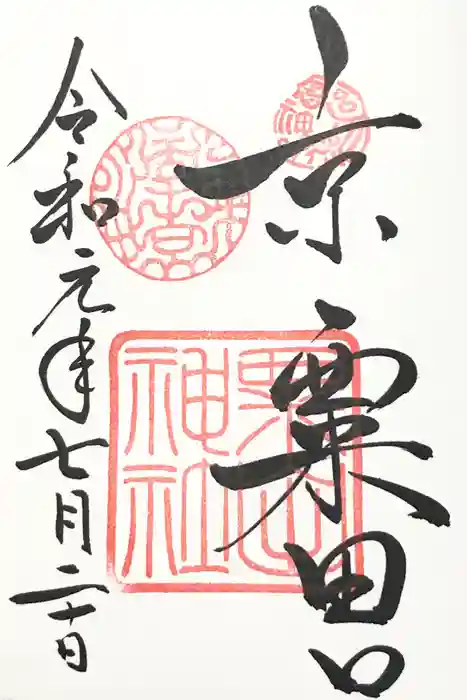 京 粟田口
令和元年七月二十日
粟田
神社